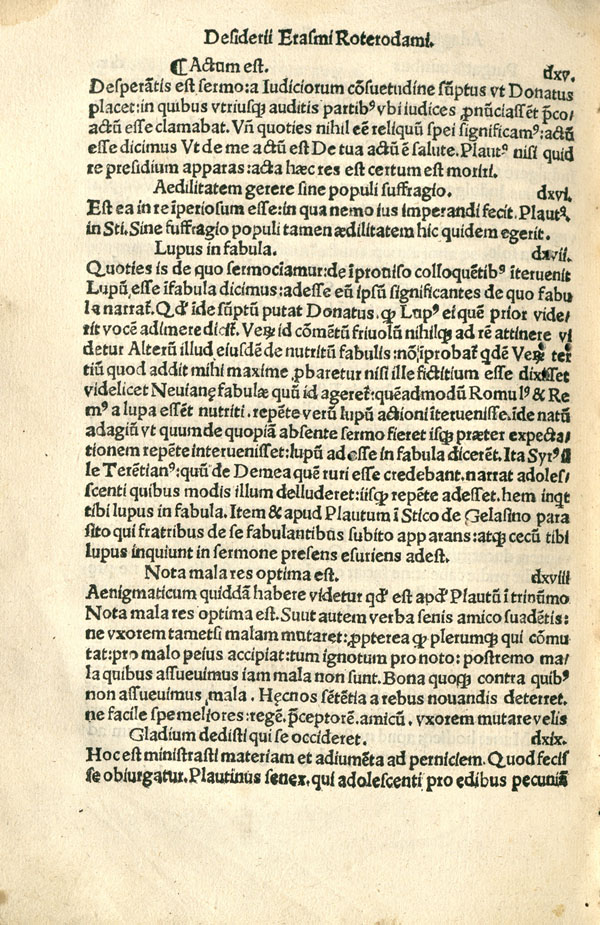 Desiderii Erasmi Roterodami.
⁋ Actum est. dxv.
Desperātis est sermo: a Iudiciorum cōsuetudine sūptus vt Donatus
placet: in quibus vtriusqȝ auditis partibꝰ vbi iudices ꝓnūciassēt p̄co/
actū esse clamabat. Vn̄ quoties nihil eē reliquū spei significamꝰ: actū
esse dicimus Vt de me actū est De tua actū ē salute. Plautꝰ nisi quid
re presidium apparas: acta hæc res est certum est moriri.
Aedilitatem gerere sine populi suffragio. dxvi.
Est ea in re īperiosum esse: in qua nemo ius imperandi fecit. Plautꝰ.
in Sti. Sine suffragio populi tamen ædilitatem hic quidem egerit.
Lupus in fabula. dxvii.
Quoties is de quo sermociamur: de īprouiso colloquētibꝰ īteruenit
Lupū esse īfabula dicimus: adesse eū ipsū significantes de quo fabu
la narrat̄. Qd̕ īde sūptū putat Donatus. ꝙ Lupꝰ ei quem prior vide/
rit vocē adimere dicit̄. Veꝝ id cōmētū friuolū nihilqȝ ad rē attinere vi
detur Alterū illud eiusdē de nutritū fabulis: nō īprobat qdē Veꝝ ter
tiū quod addit mihi maxime ꝓbaretur nisi ille fictitium esse dixisset
videlicet Neuianę fabulæ quū id ageret: quēadmodū Romulꝰ & Re
mꝰ a lupa essēt nutriti. repēte verū lupū actioni īteruenisse. īde natū
adagiū vt quum de quopiā absente sermo fieret isqȝ præter expecta/
tionem repēte interuenisset: lupū adesse in fabula dicerēt. Ita Syrꝰ il
le Terētianꝰ: quū de Demea quē ruri esse credebant. narrat adoles/
scenti quibus modis illum delluderet: iisqȝ repēte adesset. hem inqt
tibi lupus in fabula. Item & apud Plautum ī Stico de Gelasino para
sito qui fratribus de se fabulantibus subito apparans: atqȝ eccū tibi
lupus inquiunt in sermone presens esuriens adest.
Nota mala res optima est. dxviii
Aenigmaticum quiddā habere videtur qd̕ est apd̕ Plautū ī trinūmo
Nota mala res optima est. Suut autem verba senis amico suadētis:
ne vxorem tametsi malam mutaret: ꝓpterea ꝙ plerumqȝ qui cōmu
tat: pro malo peius accipiat: tum ignotum pro noto: postremo ma/
la quibus assueuimus iam mala non sunt. Bona quoqȝ contra quibꝰ
non assueuimus, mala. Hęcnos sētētia a rebus nouandis deterret.
ne facile spe meliores: regē. p̄ceptorē. amicū. vxorem mutare velis
Gladium dedisti qui se occideret. dxix.
Hoc est ministrasti materiam et adiumēta ad perniciem. Quod fecis
se obiurgatur. Plautinus senex. qui adolescenti pro edibus pecuniā